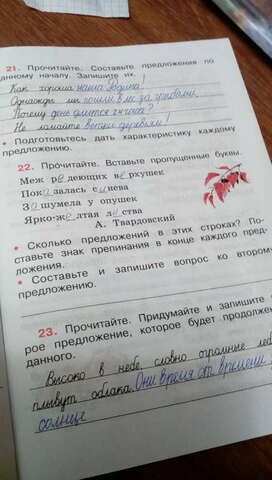 21. Прочитайте. Составьте предложения по
данному началу. Запишите их.
Как хороша наша Родина!
Однажды мы пошли в лес за грибами.
Почему день длится
Не ломайте ветки деревьев!
• Подготовьтесь дать характеристику каждому
предложению.
22. Прочитайте. Вставьте пропущенные буквы.
Меж редеющих верхушек
Показалась синева
Зашумела у опушек
Ярко-желтая листва
А. Твардовский
• Сколько предложений в этих строках? По-
ставьте знак препинания в конце каждого пред-
ложения.
• Составьте и запишите вопрос ко второму
предложению.
23. Прочитайте. Придумайте и запишите
рое предложение, которое будет продолже
данного.
Высоко в небе, словно огромные леб
плывут облака. Они время от времени
солнце